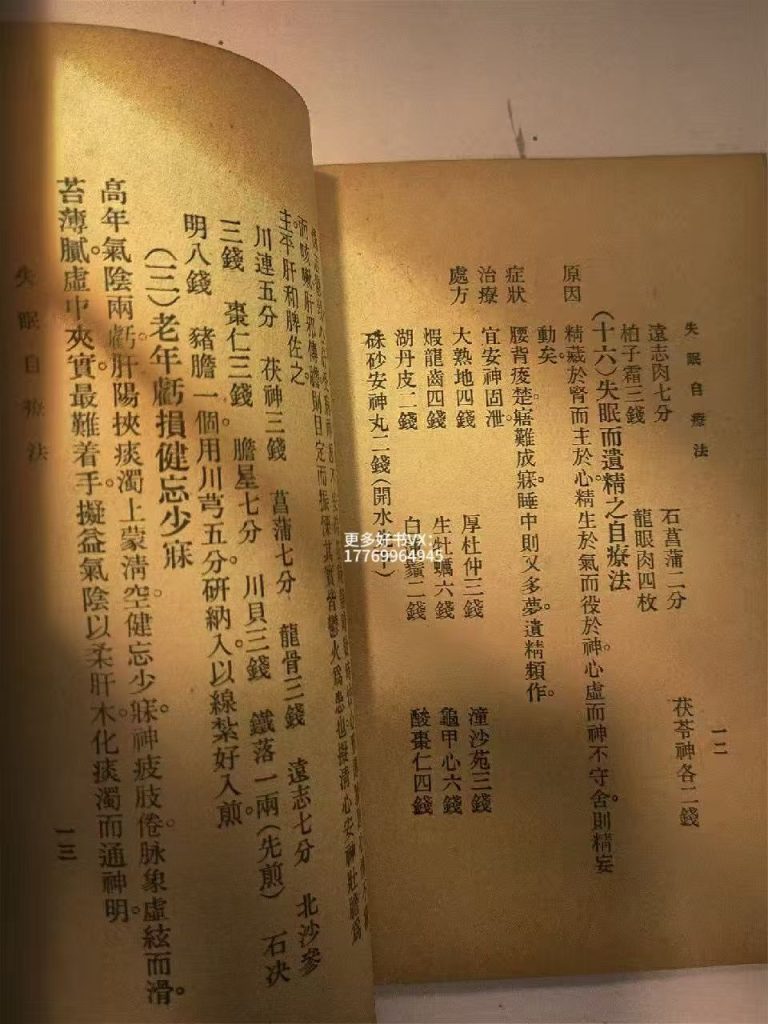 失眠自療法
一二
遠志肉七分 石菖蒲二分 茯苓神各二錢
柏子霜三錢 龍眼肉四枚
(十六)失眠而遺精之自療法
原因 精藏於腎而主於心。精生於氣而役於神。心虛而神不守舍。則精妄
動矣。
症狀 腰背痠楚。寤難成寐。睡中則又多夢。遺精類作。
治療 宜安神固泄。
處方 大熟地四錢 厚杜仲三錢 潼沙苑三錢
蝦龍齒四錢 生牡蠣六錢 龜甲心六錢
湖丹皮二錢 白 二錢 酸棗仁四錢
硃砂安神丸二錢(開水
更多好书VX:
17769964945
而咳嗽。肝邪 自定而振保其 皆鬱火爲患也。擬清心安神壯膽爲
主。平肝和脾佐之。
川連五分 茯神三錢 菖蒲七分 龍骨三錢 遠志七分 北沙參
三錢 棗仁三錢 膽星七分 川貝三錢 鐵落一兩(先煎) 石決
明八錢 豬膽一個用川芎五分研納入以線紮好入煎。
(三)老年虧損健忘少寐
高年氣陰兩虧。肝陽挾痰濁上蒙清空。健忘少寐。神疲肢倦。脉象虛絃而滑。
苔薄膩。虛中夾實。最難着手。擬益氣陰以柔肝木。化痰濁而通神明。
失眠自療法
一三